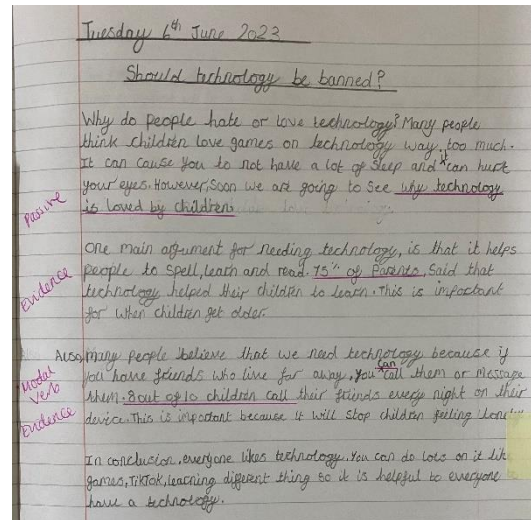 Tuesday 6th June 2023
Should technology be banned?
Why do people hate or love technology? Many people
think children love games on technology way too much.
It can cause you to not have a lot of sleep and it can hurt
your eyes. However, Soon we are going to see why technology
Passive
is loved by children.
One main argument for needing technology, is that it helps
people to spell, learn and read. 75% of Parents, Said that
Evidence
technology helped their children to learn. This is important
for when children get older.
Also, many people believe that we need technology because if
Modal
you have friends who live far away, you can call them or message
Verb
them. 8 out of 10 children call their friends every night on their
Evidence
device. This is important because it will stop children feeling lonely
In conclusion, everyone likes technology. You can do lots on it like
games, TikTok, learning different thing so it is helpful to everyone
have a technology.